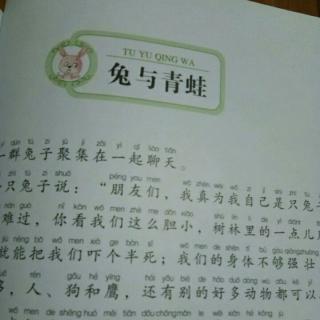 TU YU QING WA
兔与青蛙
qún tù zi jù jí zài yì qǐ liáo tiān
一群兔子聚集在一起聊天。
zhī tù zi shuō péng you men wǒ zhēn wèi wǒ zì jǐ shì zhī tù
只兔子说：“朋友们，我真为我自己是只兔
nán guò nǐ kàn wǒ men zhè me dǎn xiǎo shù lín li de yì diǎnr
难过，你看我们这么胆小，树林里的一点儿
jiù néng bǎ wǒ men xià ge bàn sǐ wǒ men de shēn tǐ bú gòu qiáng zhuàng
就能把我们吓个半死；我们的身体不够强壮
rén gǒu hé yīng hái yǒu bié de hǎo duō dòng wù dōu kě yǐ
多，人、狗和鹰，还有别的好多动物都可以